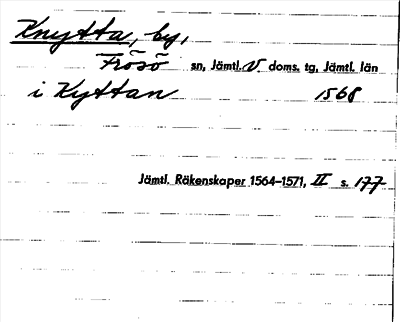 Knytta, by,
Frösö sn, Jämtl. V doms. tg, Jämtl. län
i Kyttan 1568
Jämtl. Räkenskaper 1564–1571, II s. 177